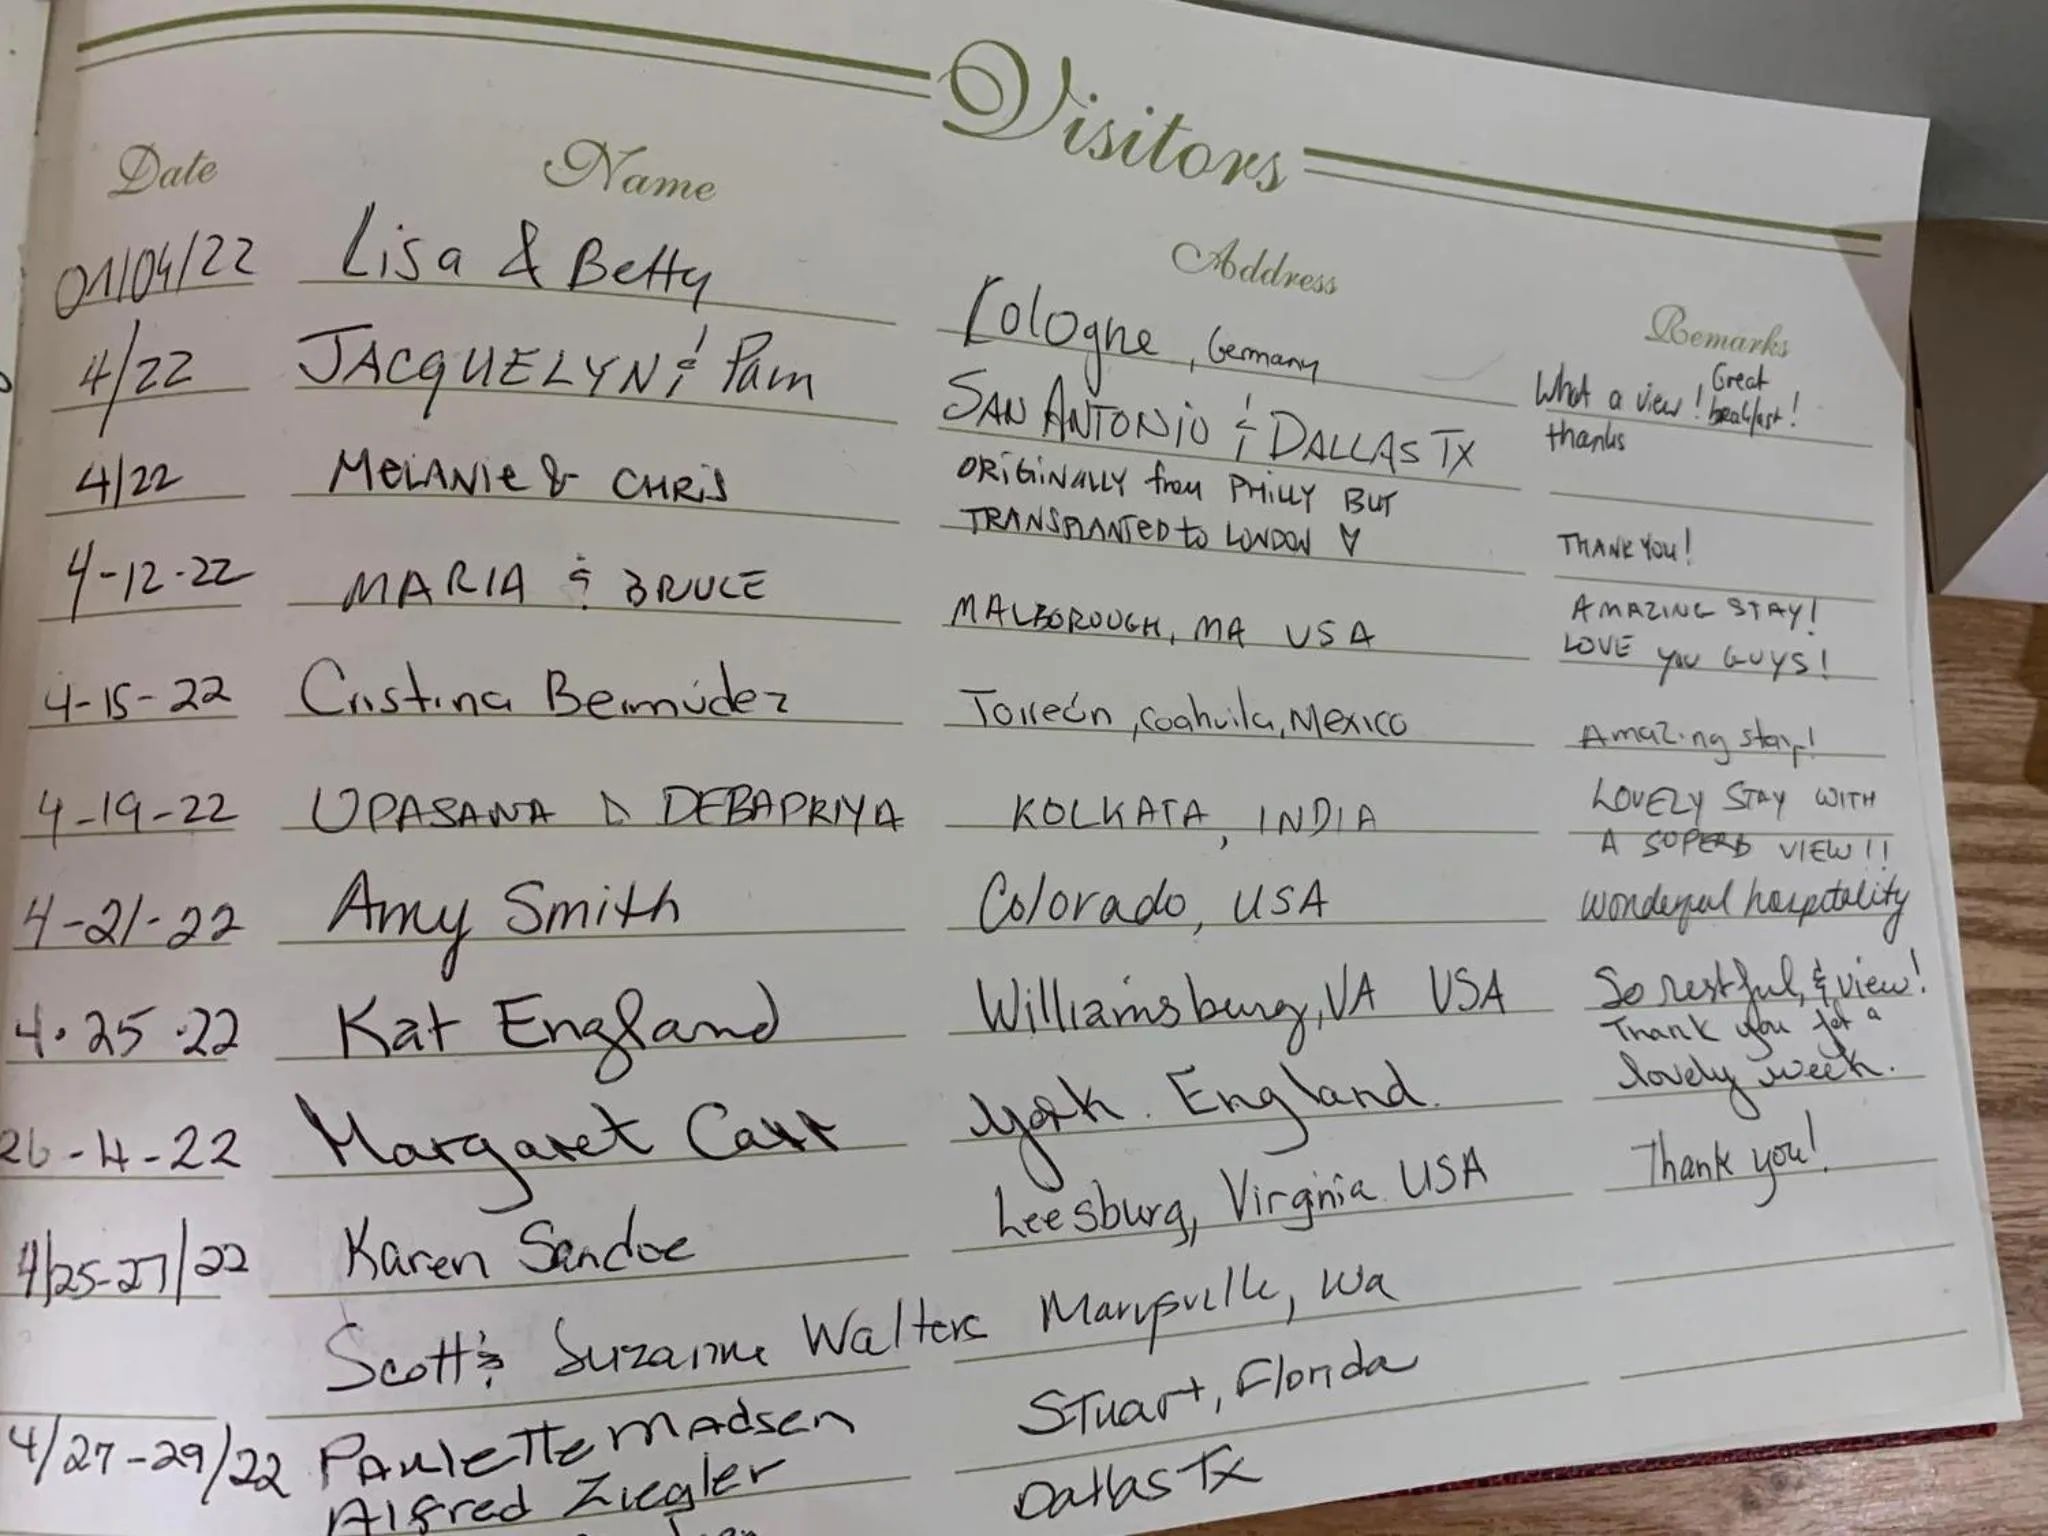 Visitors
Date Name Address Remarks
01/04/22 Lisa & Betty Cologne, Germany What a view! Great breakfast!
thanks
4/22 JACQUELYN & Pam SAN ANTONIO & DALLAS TX
4/22 MELANIE & CHRIS ORIGINALLY from PHILLY BUT
TRANSPLANTED to LONDON THANK YOU!
4-12-22 MARIA & BRUCE MALBOROUGH, MA USA AMAZING STAY!
LOVE you GUYS!
4-15-22 Cristina Bermúdez Torreón, Coahuila, Mexico Amazing stay!
4-19-22 UPASANA & DEBAPRIYA KOLKATA, INDIA LOVELY STAY WITH
A SUPERB VIEW!!
4-21-22 Amy Smith Colorado, USA Wonderful hospitality
4.25.22 Kat England Williamsburg, VA USA So restful, & view!
26-4-22 Margaret Carr York. England. Thank you for a
lovely week.
4/25-27/22 Karen Sandoe Leesburg, Virginia USA Thank you!
Scott & Suzanne Walters Marysville, Wa
4/27-29/22 Paulette Madsen Stuart, Florida
Alfred Ziegler Dallas TX